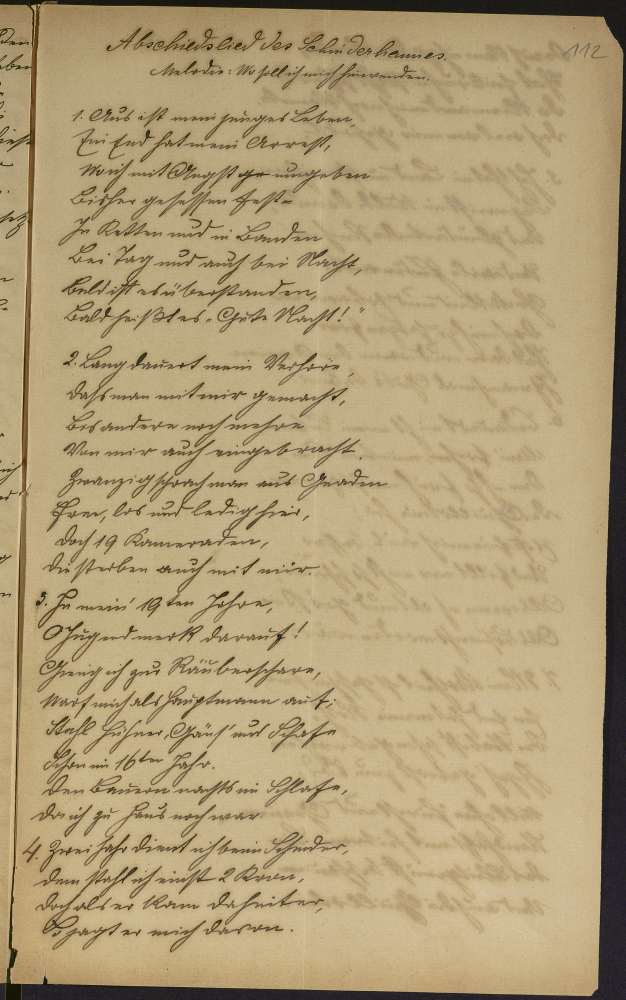 112
Abschiedslied des Schinderhannes.
Melodie: Wo soll ich mich hinwenden.
1. Aus ist mein junges Leben,
Ein End hat mein Arrest,
Wo ich mit Angst umgeben
Bisher gesessen fest.
In Ketten und in Banden
Bei Tag und auch bei Nacht,
Bald ist es überstanden,
Bald heißt es „Gute Nacht!"
2. Lang dauert mein Verhöre,
Dass man mit mir gemacht,
Bis andere noch mehre
Von mir auch eingebracht.
Zwanzig sprach man aus Gnaden
Frei, los und ledig hier,
Doch 19 Kameraden,
Die sterben auch mit mir.
3. In mein' 19ten Jahre,
O Jugend merk darauf!
Gieng ich zur Räuberschare,
Warf mich als Hauptmann auf;
Stahl Hühner, Gäns' und Schafe
Schon im 16ten Jahr.
Den Bauern nachts im Schlafe,
Da ich zu Haus noch war
4. Zwei Jahr dient ich beim Schinder,
Dem stahl ich einst 2
Doch als er kam dahinter,
So jagt er mich davon.